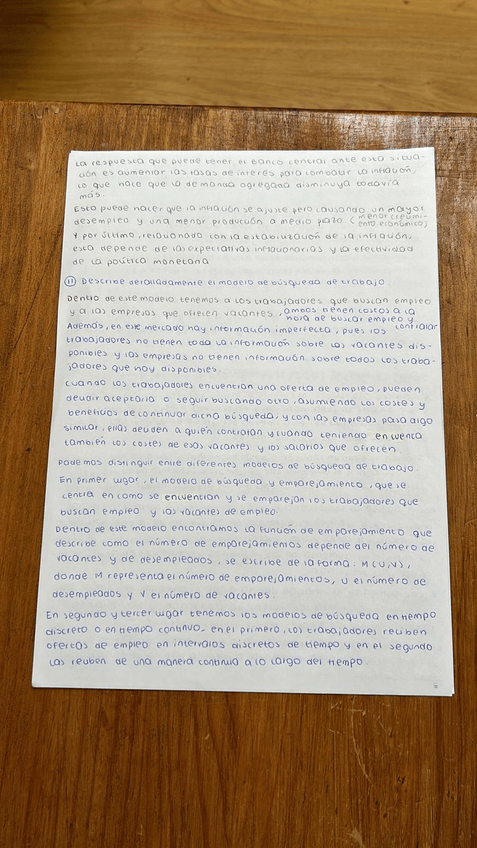 La respuesta que puede tener el Banco central ante esta situa-
ción es aumentar las tasas de interés para combatir la inflación,
lo que hace que la demanda agregada disminuya todavía
más.
Esto puede hacer que la inflación se ajuste pero causando un mayor
desempleo y una menor producción a medio plazo. (menor crecimi-
ento económico)
Y por último, relacionado con la estabilización de la inflación,
esta depende de las expectativas inflacionarias y la efectividad
de la política monetaria
11 Describe detalladamente el modelo de búsqueda de trabajo
Dentro de este modelo tenemos a los trabajadores que buscan empleo
y a las empresas que ofrecen vacantes, ambos tienen costos a la
hora de buscar empleo y
contratar
Además, en este mercado hay información imperfecta, pues los
trabajadores no tienen toda la información sobre las vacantes dis-
ponibles y las empresas no tienen información sobre todos los traba-
jadores que hay disponibles.
Cuando los trabajadores encuentran una oferta de empleo, pueden
decidir aceptarla o seguir buscando otro, asumiendo los costes y
beneficios de continuar dicha búsqueda, y con las empresas pasa algo
similar, ellas deciden a quién contratan y cuando teniendo en cuenta
también los costes de esas vacantes y los salarios que ofrecen.
Podemos distinguir entre diferentes modelos de búsqueda de trabajo.
En primer lugar, el modelo de búsqueda y emparejamiento, que se
centra en como se encuentran y se emparejan los trabajadores que
buscan empleo y las vacantes de empleo.
Dentro de este modelo encontramos la función de emparejamiento que
describe como el número de emparejamientos depende del número de
vacantes y de desempleados, se escribe de la forma: M(U,V),
donde M representa el número de emparejamientos, U el número de
desempleados y V el número de vacantes.
En segundo y tercer lugar tenemos los modelos de búsqueda en tiempo
discreto o en tiempo continuo, en el primero, los trabajadores reciben
ofertas de empleo en intervalos discretos de tiempo y en el segundo
las reciben de una manera continua a lo largo del tiempo.